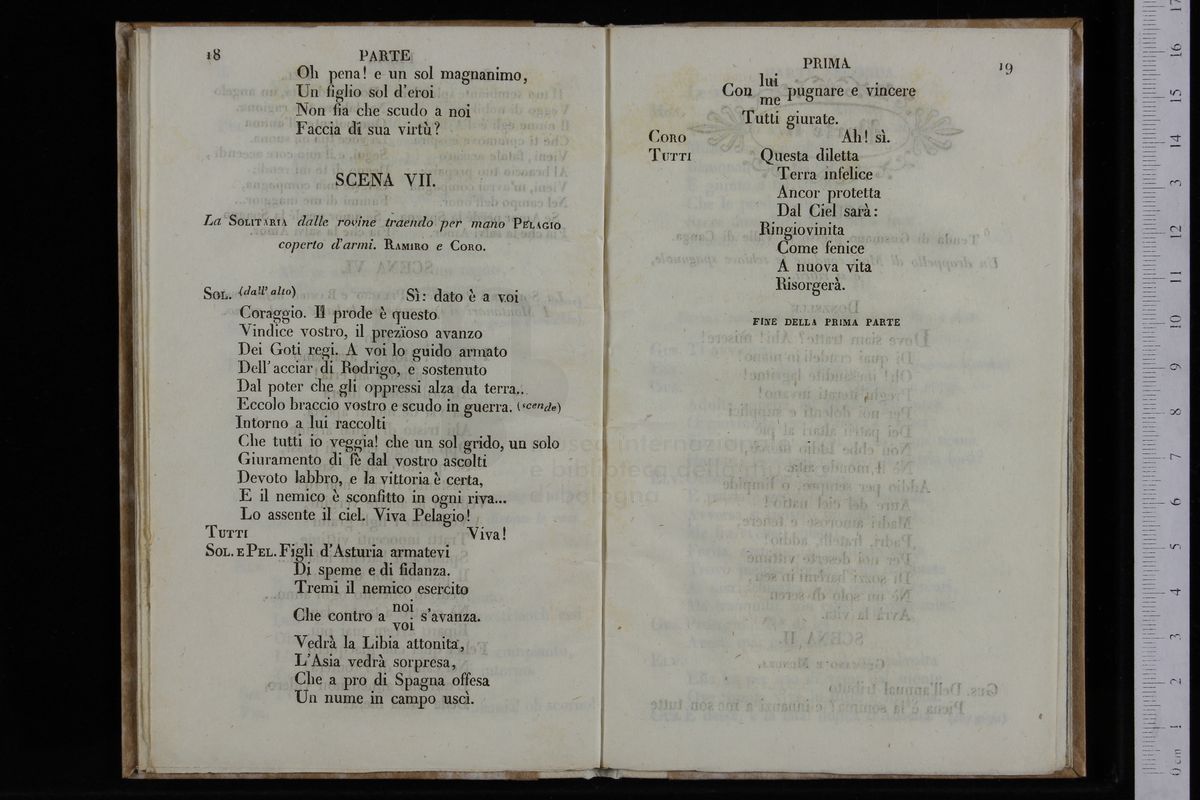 18 PARTE
Oh pena! e un sol magnanimo,
Un figlio sol d'eroi
Non fia che scudo a noi
Faccia di sua virtù?
SCENA VII.
La SOLITARIA dalle rovine traendo per mano PELAGIO
coperto d'armi. RAMIRO e CORO.
SOL. (dall' alto) Sì: dato è a voi
Coraggio. Il prode è questo
Vindice vostro, il prezïoso avanzo
Dei Goti regi. A voi lo guido armato
Dell' acciar di Rodrigo, e sostenuto
Dal poter che gli oppressi alza da terra..
Eccolo braccio vostro e scudo in guerra. (scende)
Intorno a lui raccolti
Che tutti io veggia! che un sol grido, un solo
Giuramento di fè dal vostro ascolti
Devoto labbro, e la vittoria è certa,
E il nemico è sconfitto in ogni riva...
Lo assente il ciel. Viva Pelagio!
TUTTI Viva!
SOL. E PEL. Figli d'Asturia armatevi
Di speme e di fidanza.
Tremi il nemico esercito
Che contro a noi voi s'avanza.
Vedrà la Libia attonita,
L'Asia vedrà sorpresa,
Che a pro di Spagna offesa
Un nume in campo uscì.
PRIMA 19
Con lui me pugnare e vincere
Tutti giurate.
CORO Ah! sì.
TUTTI Questa diletta
Terra infelice
Ancor protetta
Dal Ciel sarà:
Ringiovinita
Come fenice
A nuova vita
Risorgerà.
FINE DELLA PRIMA PARTE
museo internazionale
e biblioteca della musica
di bologna
0 cm 1 2 3 4 5 6 7 8 9 10 11 12 13 14 15 16 17